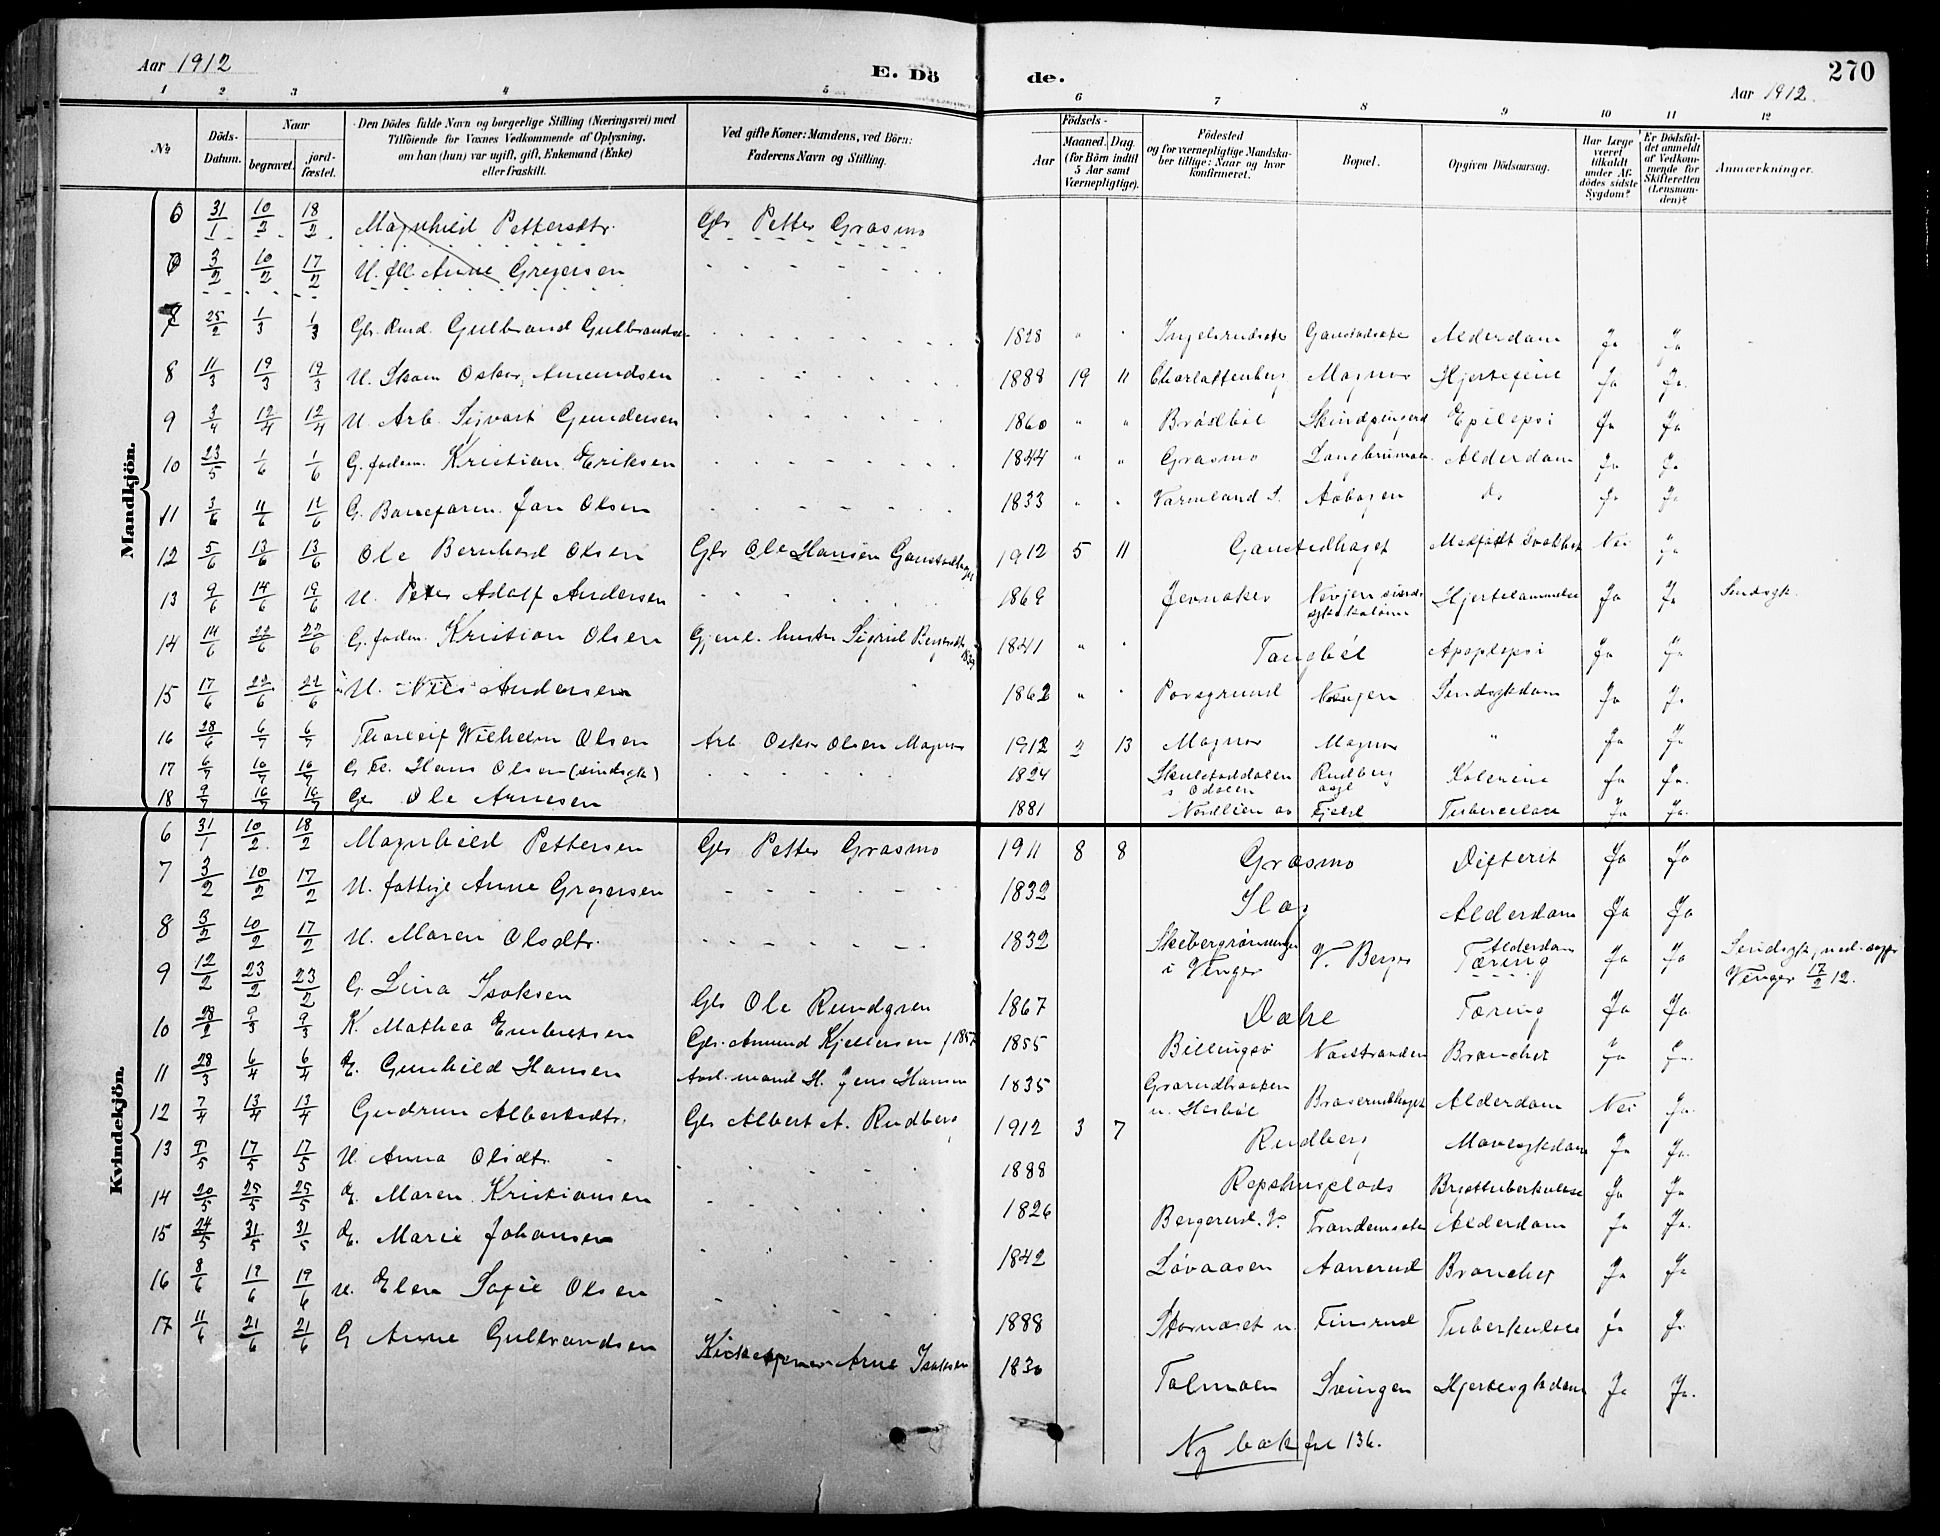 Aar 1912
E. Dö
de.
270
Aar 1912.
1 2 3 4 5 6 7 8 9 10 11 12
№
Döds-Datum.
Naar
begravet.
jord-fæstet.
Den Dödes fulde Navn og borgerlige Stilling (Næringsvei) med
Tilföiende for Voxnes Vedkommende af Oplysning,
om han (hun) var ugift, gift, Enkemand (Enke)
eller fraskilt.
Ved gifte Koner: Mandens, ved Börn:
Faderens Navn og Stilling.
Födsels-
Aar
Maaned. Dag
(for Börn indtil
5 Aar samt
Værnepligtige).
Födested
og for værnepligtige Mandska-
ber tillige: Naar og hvor
konfirmeret.
Bopæl.
Opgiven Dödsaarsag.
Har Læge
været
tilkaldt
under Af-
dödes sidste
Sygdom?
Er Dödsfal-
det anmeldt
af Vedkom-
mende for
Skifteretten
(Lensman-
den)?
Anmærkninger.
Mandkjön.
6 31/1 10/2 18/2 Magnhild Pettersdtr. Gbr Petter Grasmo
3/2 10/2 17/2 U. fll. Anne Gregersen
7 25/2 1/3 1/3 Gbr. Rud. Gulbrand Gulbrandsen 1828 " Gaustadsæte Alderdom Ja Ja
8 11/3 19/3 19/3 U. Skom Oskar Amundsen 1888 19 11 Charlottenberg Magnor Hjertefeil Ja Ja.
9 3/4 12/4 12/4 U. Arb. Sigvart Gundersen 1860 " " Brødbøl Epilepsi Ja Ja
10 23/5 1/6 1/6 G. fodm. Kristian Eriksen 1844 " " Grasmo Alderdom Ja Ja
11 3/6 11/6 11/6 G. Baneform. Jan Olsen 1833 " Varmland S. Aabogen do Ja Ja
12 5/6 13/6 13/6 Ole Bernhard Olsen Gbr Ole Hansen 1912 5 11 Gaustadhaget Medfødt Nei Ja
13 9/6 14/6 19/6 U. Peter Adolf Andersen 1869 Jevnaker Ja Ja Sindsygk.
14 14/6 22/6 22/6 G. fodm. Kristian Olsen 1841 " Tangbøl Apoplepsi Ja Ja
15 17/6 22/6 22/6 U. Nils Andersen 1862 " Porsgrund Sindsygdom Ja Ja
16 28/6 6/7 6/7 Thorleif Wilhelm Olsen Arb. Oskar Olsen Magnor 1912 2 13 Magnor Magnor " Ja Ja
17 6/7 10/7 10/7 Hans Olsen (sindsyk) 1824 s Odalen Rudberg Ja Ja.
18 9/7 16/7 16/7 G. Ole Arnesen 1881 Fjeld Tuberculose Ja Ja.
Kvindekjön.
6 31/1 10/2 18/2 Magnhild Pettersen Gbr Petter Grasmo 1911 8 8 Grasmo Difterit Ja Ja
7 3/2 10/2 17/2 U. fattige Anne Gregersen 1832 Alderdom Ja Ja
8 3/2 10/2 17/2 U. Maren Olsdtr. 1832 i Vinger V. Berger Alderdom Tæring Ja Ja Sindsygk, Vinger 17/2 12.
9 12/2 23/2 23/2 G Lina Isaksen Gbr Ole Rundgren 1867 Dahl Tæring Ja Ja
10 28/2 9/3 9/3 K. Mathea Embretsen Gbr. Amund Kjellersen f 1857 1855 Billingsø Bronchit Ja Ja.
11 28/3 6/4 6/4 E. Gunhild Hansen H. Jens Hansen 1835 Alderdom Nei Ja.
12 7/4 13/4 13/4 Gudrun Albertsdtr. Gbr Albert A. Rudberg 1912 3 7 Rudberg Mavesygdom Ja Ja.
13 9/5 17/5 17/5 U. Anna Olsdtr. 1888 Repshusplads Ja Ja
14 20/5 25/5 25/5 E. Maren Kristiansen 1826 Bergerud. V. Alderdom Ja Ja.
15 24/5 31/5 31/5 E. Marie Johansen 1842 Løvaasen Aanerud Bronchit Ja Ja
16 8/6 19/6 19/6 U. Elen Sofie Olsen 1888 Finsrud Tuberkulose Ja Ja
17 11/6 21/6 21/6 G Anne Gulbrandsen Kirketjener Arne Isaksen 1830 Tolmoen Svingen Hjertesygdom Ja Ja.
Ny bok fol 136.